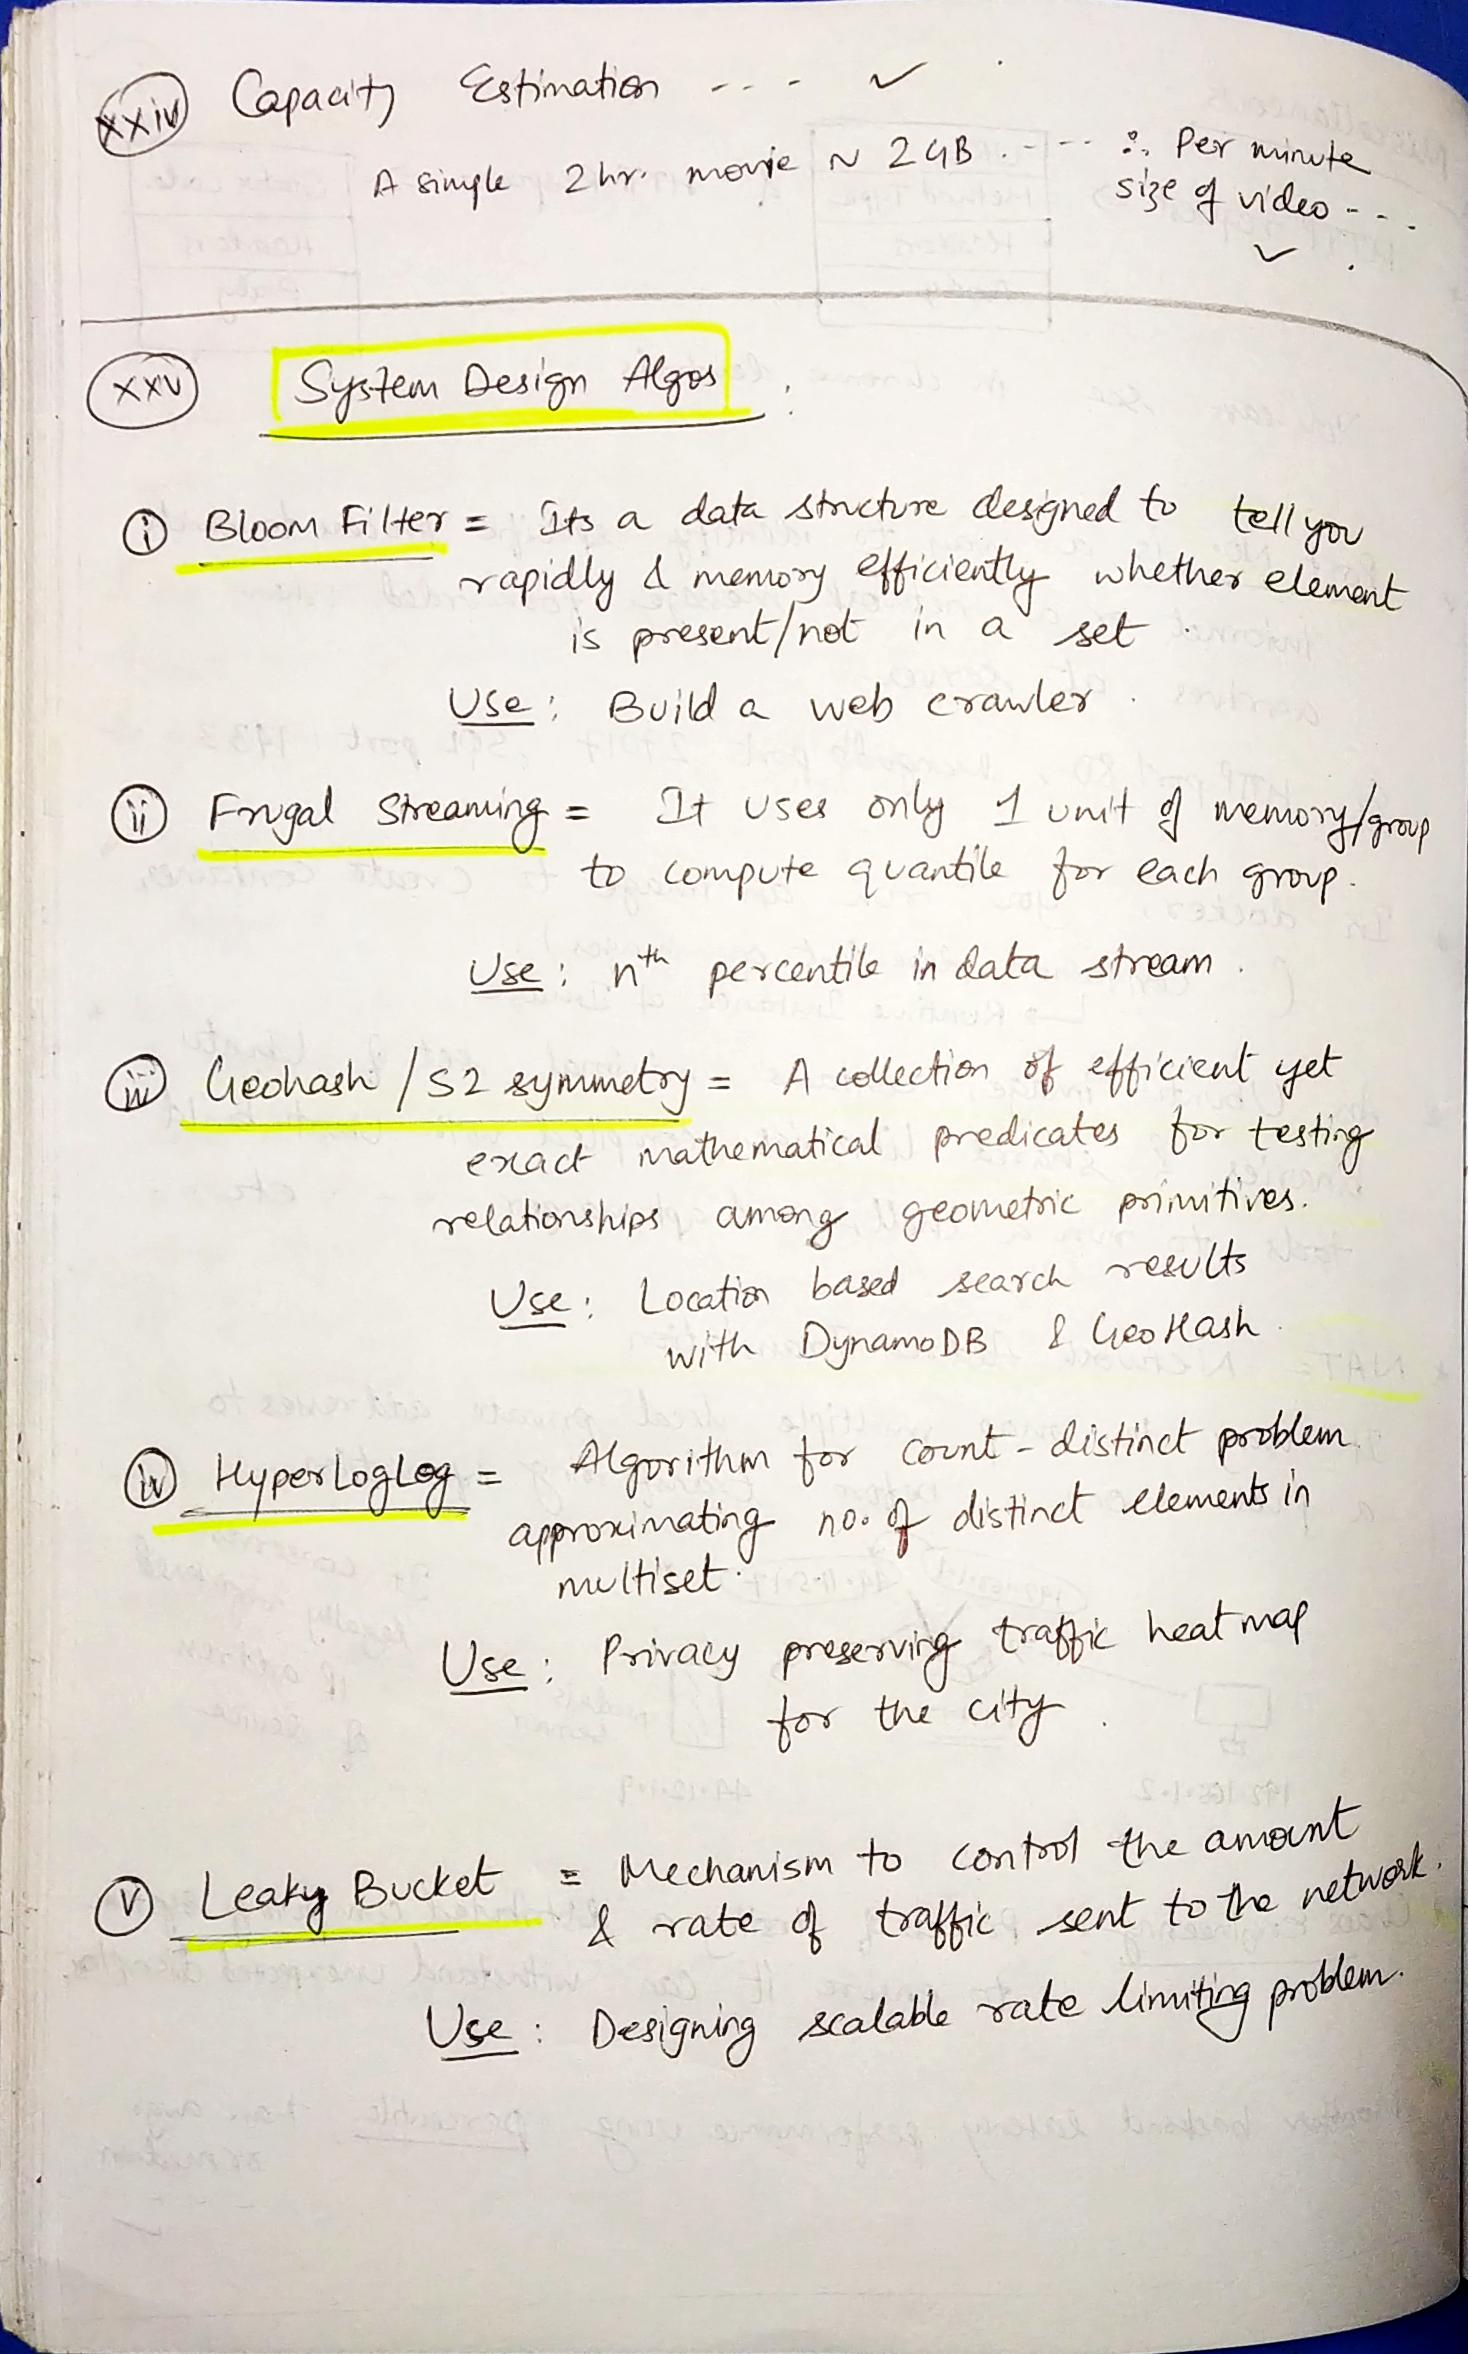 xxiv Capacity Estimation ---- ✓
A simple 2 hr. movie ~ 2 GB ---- ∴ Per minute
size of video ---
✓
xxv System Design Algos :
i Bloom Filter = Its a data structure designed to tell you
rapidly & memory efficiently whether element
is present/not in a set.
Use : Build a web crawler.
ii Frugal Streaming = It uses only 1 unit of memory/group
to compute quantile for each group.
Use : nth percentile in data stream.
iii Geohash / S2 symmetry = A collection of efficient yet
exact mathematical predicates for testing
relationships among geometric primitives.
Use : Location based search results
with DynamoDB & GeoHash.
iv HyperLogLog = Algorithm for count-distinct problem
approximating no. of distinct elements in
multiset.
Use : Privacy preserving traffic heat map
for the city.
v Leaky Bucket = Mechanism to control the amount
& rate of traffic sent to the network.
Use : Designing scalable rate limiting problem.